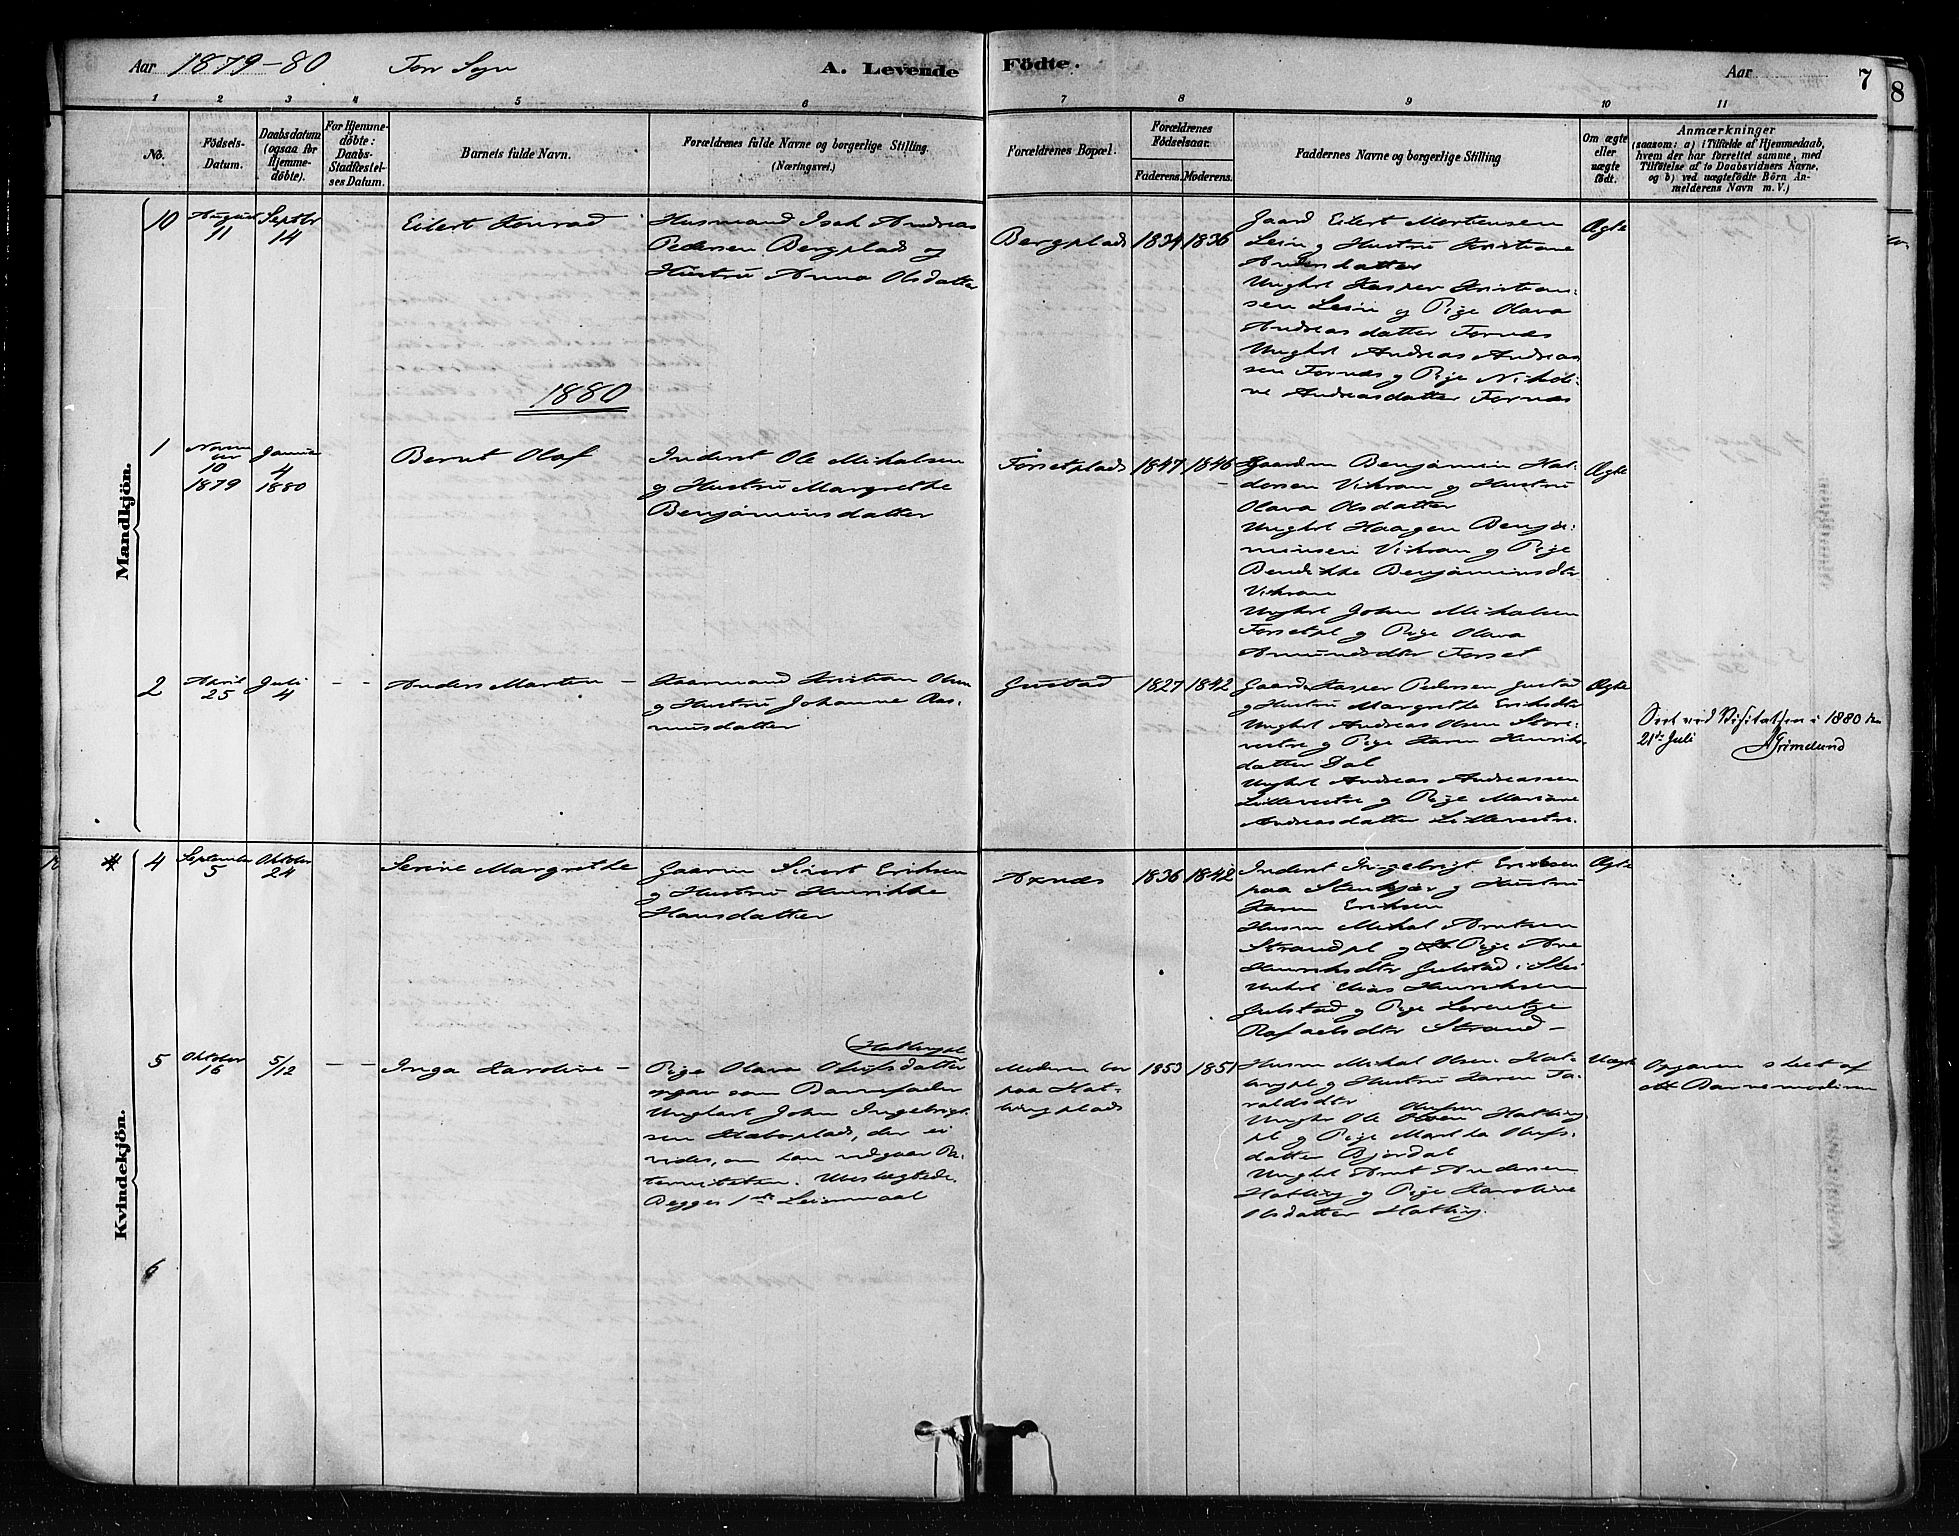 Aar 1879-80 For Sogn A. Levende Födte. Aar 7
8
1 2 3 4 5 6 7 8 9 10 11
No.
Födsels-
Datum.
Daabsdatum
(ogsaa for
Hjemme-
döbte).
For Hjemme-
döbte:
Daabs-
Stadfæstel-
ses Datum.
Barnets fulde Navn.
Forældrenes fulde Navne og borgerlige Stilling
(Næringsvei.)
Forældrenes Bopæl.
Forældrenes
Födselsaar.
Faderens. Moderens.
Faddernes Navne og borgerlige Stilling
Om ægte
eller
uægte
födt.
Anmærkninger
(saasom: a) i Tilfælde af Hjemmedaab,
hvem der har forrettet samme, med
Tilföielse af to Daabsvidners Navne,
og b) ved uægtefödte Börn An-
melderens Navn m. V.)
Mandkjön.
10
August
11
Septbr
14
Eilert Konrad
Husmand Isak Andreas
Pedersen Bergplads og
Hustru Anna Olsdatter
Bergplads
1834 1836
Gaard Eilert Mortensen
Lein og Hustru Kristiane
Andersdatter
Unghrl Kasper Kristian-
sen Lein og Pige Olava
Andreasdatter Fornes
Unghrl Andreas Andreas
sen Fornes og Pige Nikoli-
ne Andreasdatter Fornes
Ægte
1880
1
Novem
ber
10
1879
Januar
4
1880
Bernt Olaf
Inderst Ole Mikalsen
og Hustru Margrethe
Benjaminsdatter
Førsetplads
1847 1846
Gaardm Benjamin Hal-
dorsen Vikran og Hustru
Olava Olsdatter
Unghrl Haagen Benja-
minsen Vikran og Pige
Bendikke Benjaminsdtr
Vikran
Unghrl Johan Mikalsen
Forsetpl og Pige Olava
Amundsdtr Forset
Ægte
2
April
25
Juli
4
- -
Anders Marten -
Gaarmand Kristian Olsen
og Hustru Johanne Ras-
musdatter
Gustad
1827 1842
Gaardm Kasper Pedersen Gustad
og Hustru Margrethe Eriksdtr
Unghrl Andreas Olsen Store-
vestre og Pige Karen Henriks-
datter Dal
Unghrl Andreas Andreassen
Littlevestre og Pige Mariane
Andreasdatter Littlevestre.
Ægte
Seet ved Visitatsen i 1880 den
21de Juli AGrimelund
Kvindekjön.
4
September
5
Oktober
24
Serine Margrethe
Gaarm Sivert Eriksen
og Hustru Henrikke
Hansdatter
Axnes
1836 1842
Inderst Ingebrigt Eriksen
paa Stenkjær og Hustru
Karen Eriksen
Husm Mikal Arntsen
Strandpl og Pige Ane
Henriksdtr Julstad i Skei
Unghrl Elias Henriksen
Julstad og Pige Lorentze
Rafaelsdtr Strand -
Ægte
5
Oktober
16
5/12
- -
Inga Karoline -
Hatlingpl
Pige Olava Olufsdatter
opgav som Barnefader
Ungharl John Ingebrigt-
sen Stabsplads, der ei
vides, om han vedgaar Pa-
terniteten. Ubesvogrede.
Begges 1ste Leiermaal
Moderen bor
paa Hat-
lingplads
1853 1851
Husm Mikal Olsen Hat-
lingpl og Hustru Karen Ta-
raldsdtr
Unghr Ole Olufsen Hatling
pl og Pige Martha Olufs-
datter Bjørdal
Unghrl Arnt Andersen
Hatling og Pige Karoline
Olsdatter Hatling.
Uægte
Opgaven skeet af
Barnemoderen
6